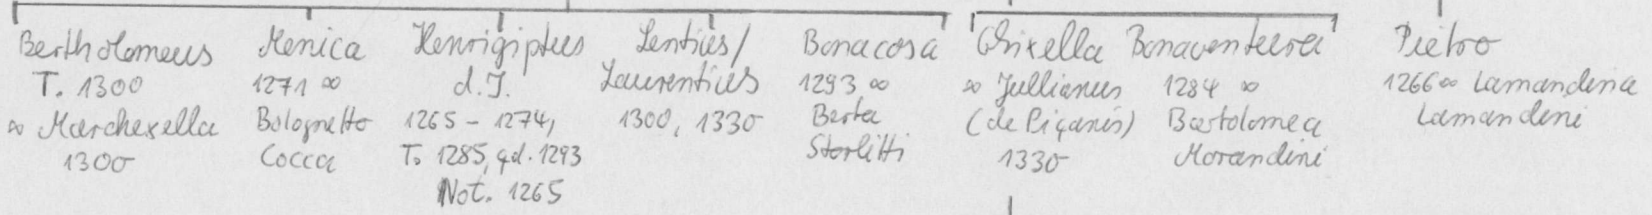 Bertholomeus
T. 1300
∞ Marchexella
1300
Menica
1271 ∞
Bolognetto
Cocca
Henrigiptus
d. J.
1265 - 1274,
T. 1285, qd. 1293
Not. 1265
Lentius/
Laurentius
1300, 1330
Bonacosa
1293 ∞
Berta
Storlitti
Ghixella
∞ Jullianus
(de Piçanis)
1330
Bonaventura
1284 ∞
Bartolomea
Morandini
Pietro
1266 ∞ Lamandina
Lamandini